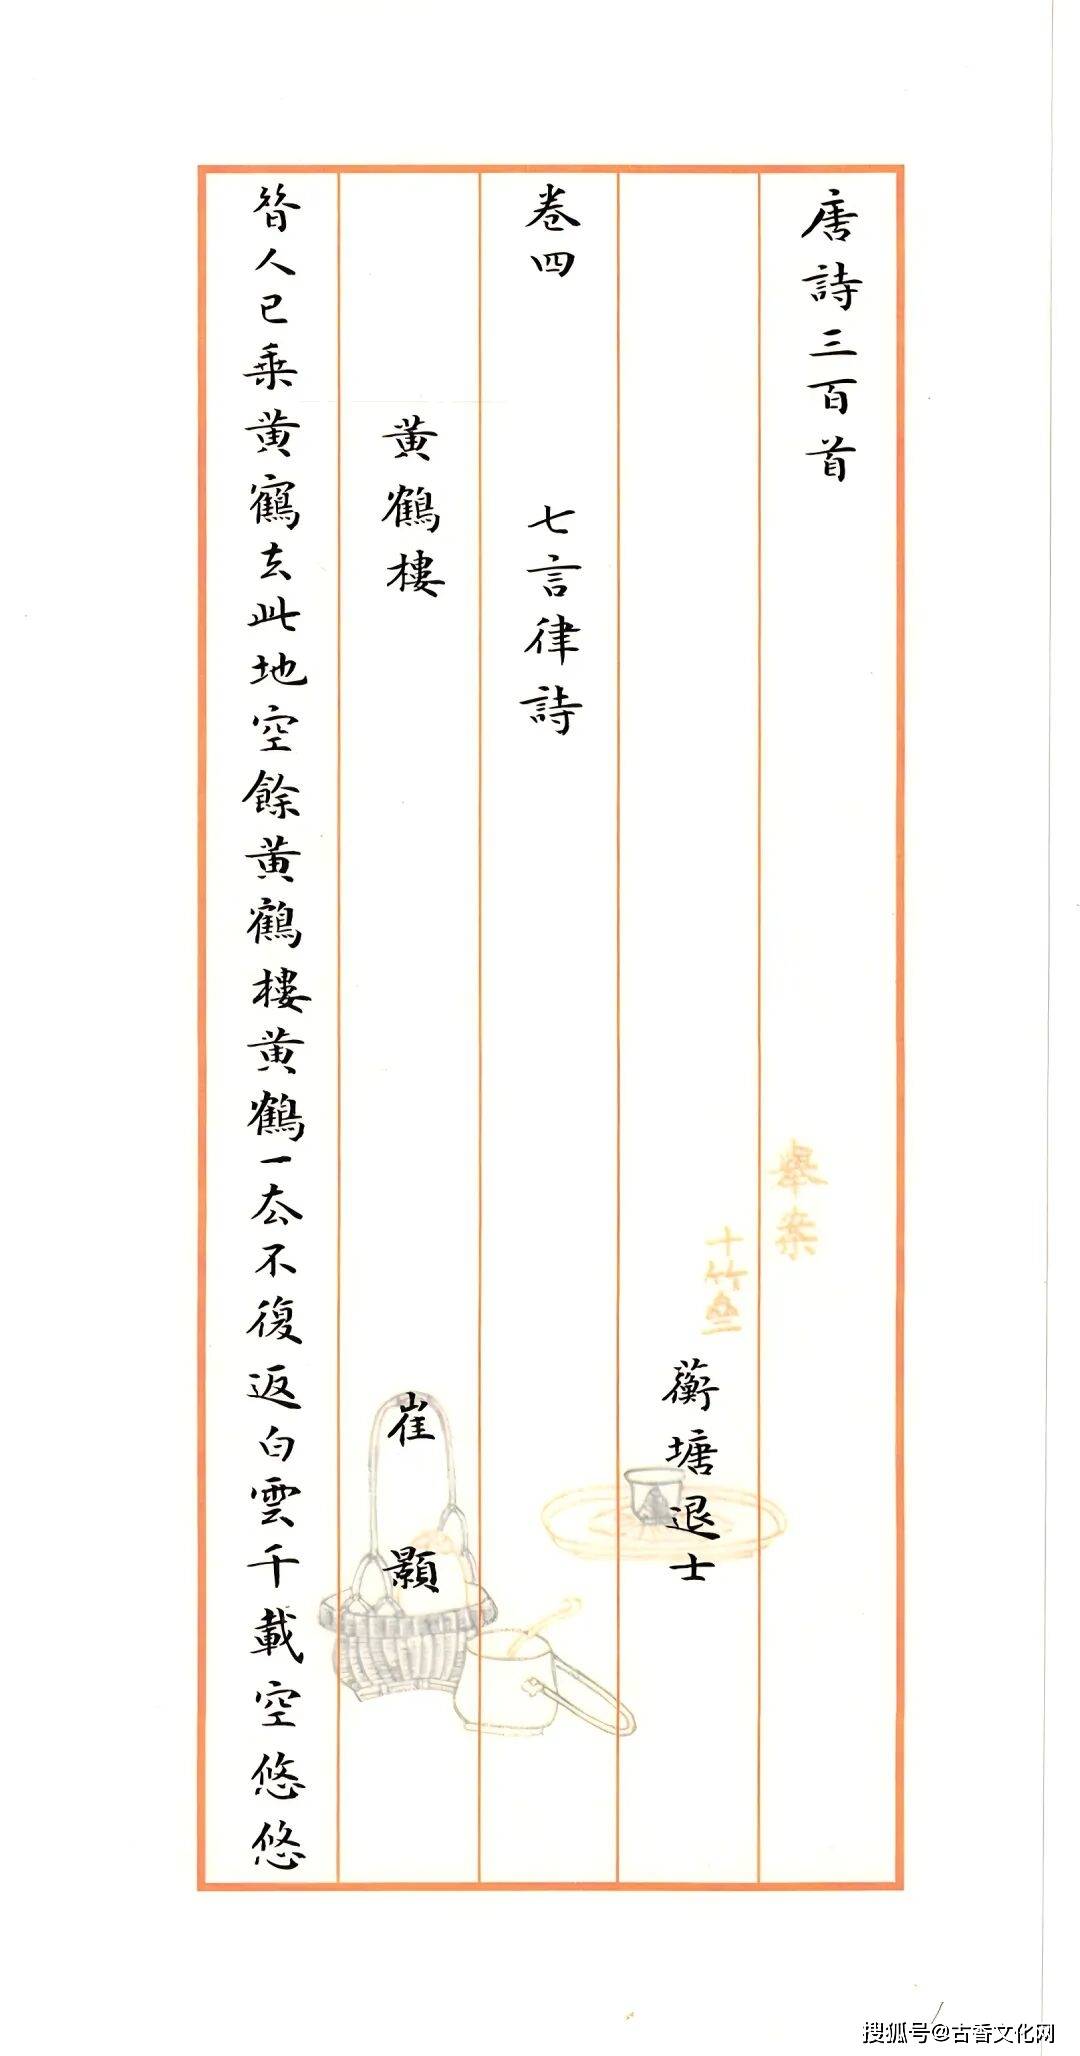 唐詩三百首
蘅塘退士
卷四 七言律詩
黄鶴樓 崔顥
昝人已乘黄鶴去此地空餘黄鶴樓黄鶴一去不復返白雲千載空悠悠
舉案
十竹
搜狐号@古香文化网